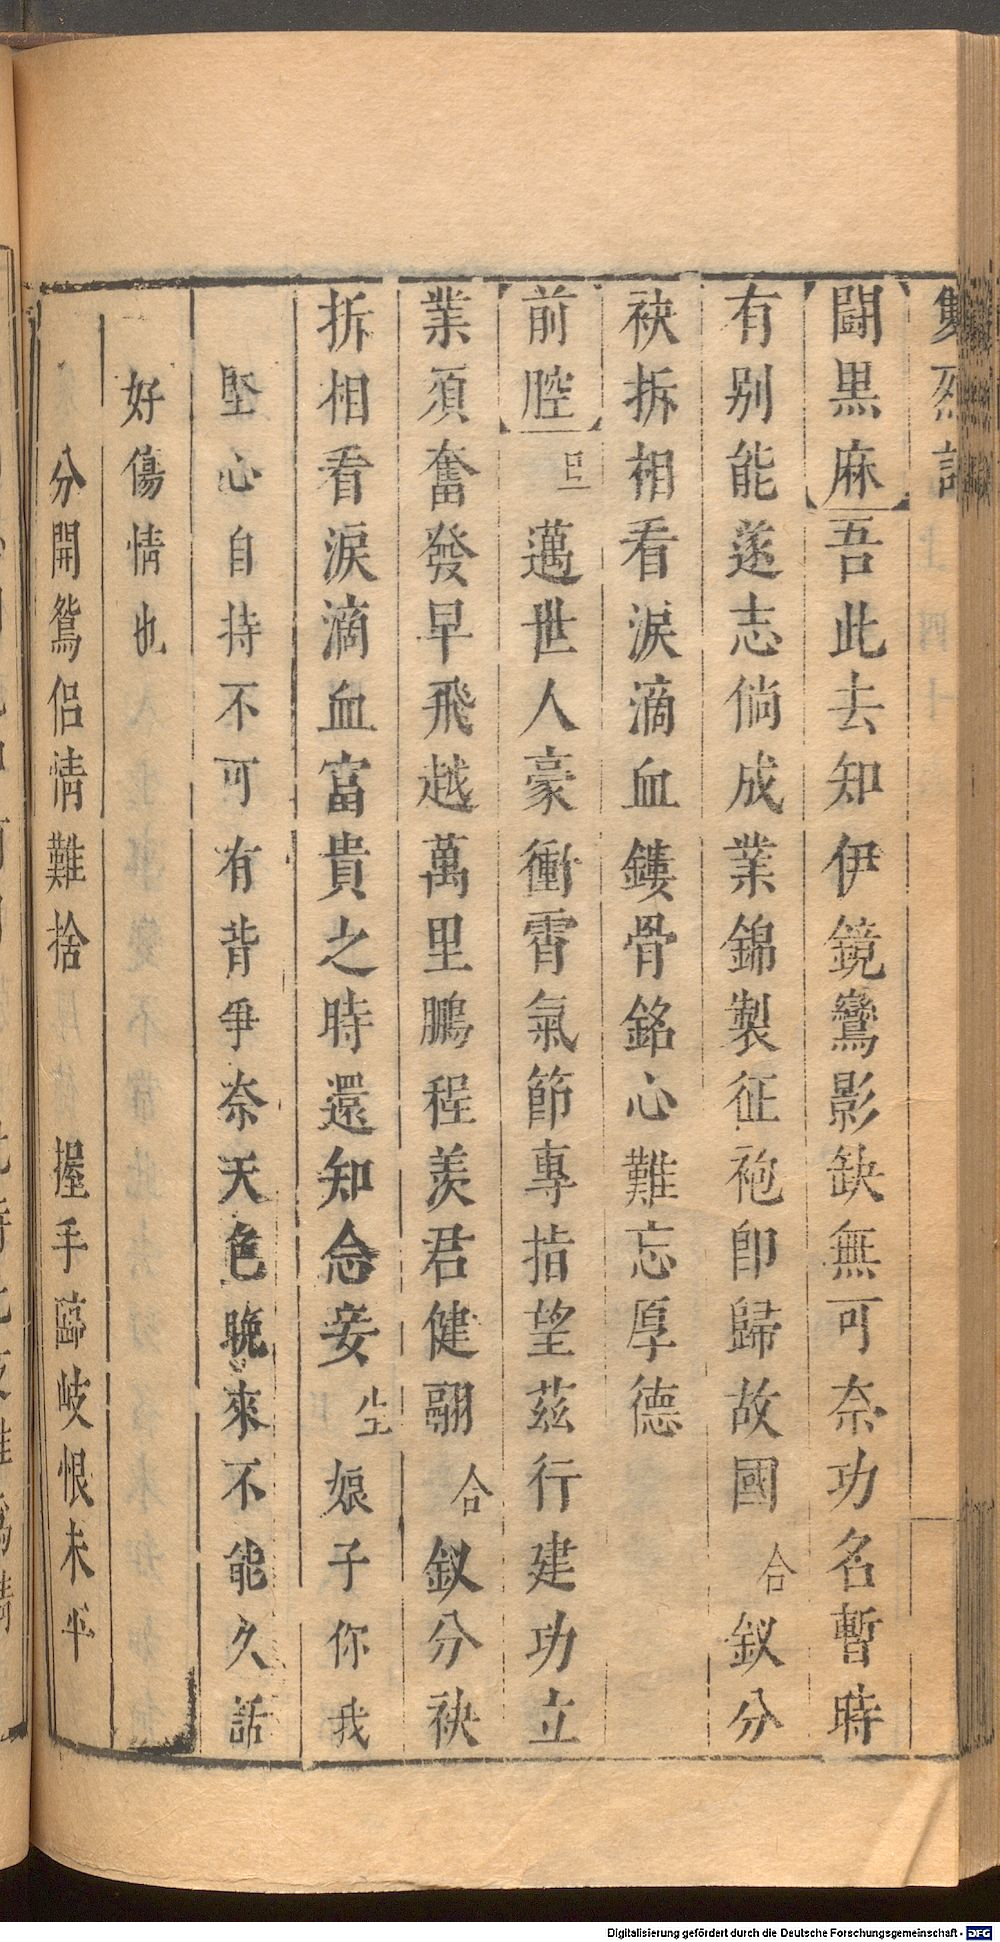 雙烈記
鬪黒麻吾此去知伊鏡鸞影缺無可奈功名暫時
有别能遂志倘成業錦製征袍即歸故國 合 釵分
袂拆相看淚滴血鏤骨銘心難忘厚德
前腔 旦 邁世人豪衝霄氣節專指望茲行建功立
業須奮發早飛越萬里鵬程羡君健翮 合 釵分袂
拆相看淚滴血富貴之時還知念妾 生 娘子你我
堅心自持不可有背爭奈天色晚來不能久話
好傷情也
分開鴛侶情難捨 握手臨岐恨未平
Digitalisierung gefördert durch die Deutsche Forschungsgemeinschaft - DFG